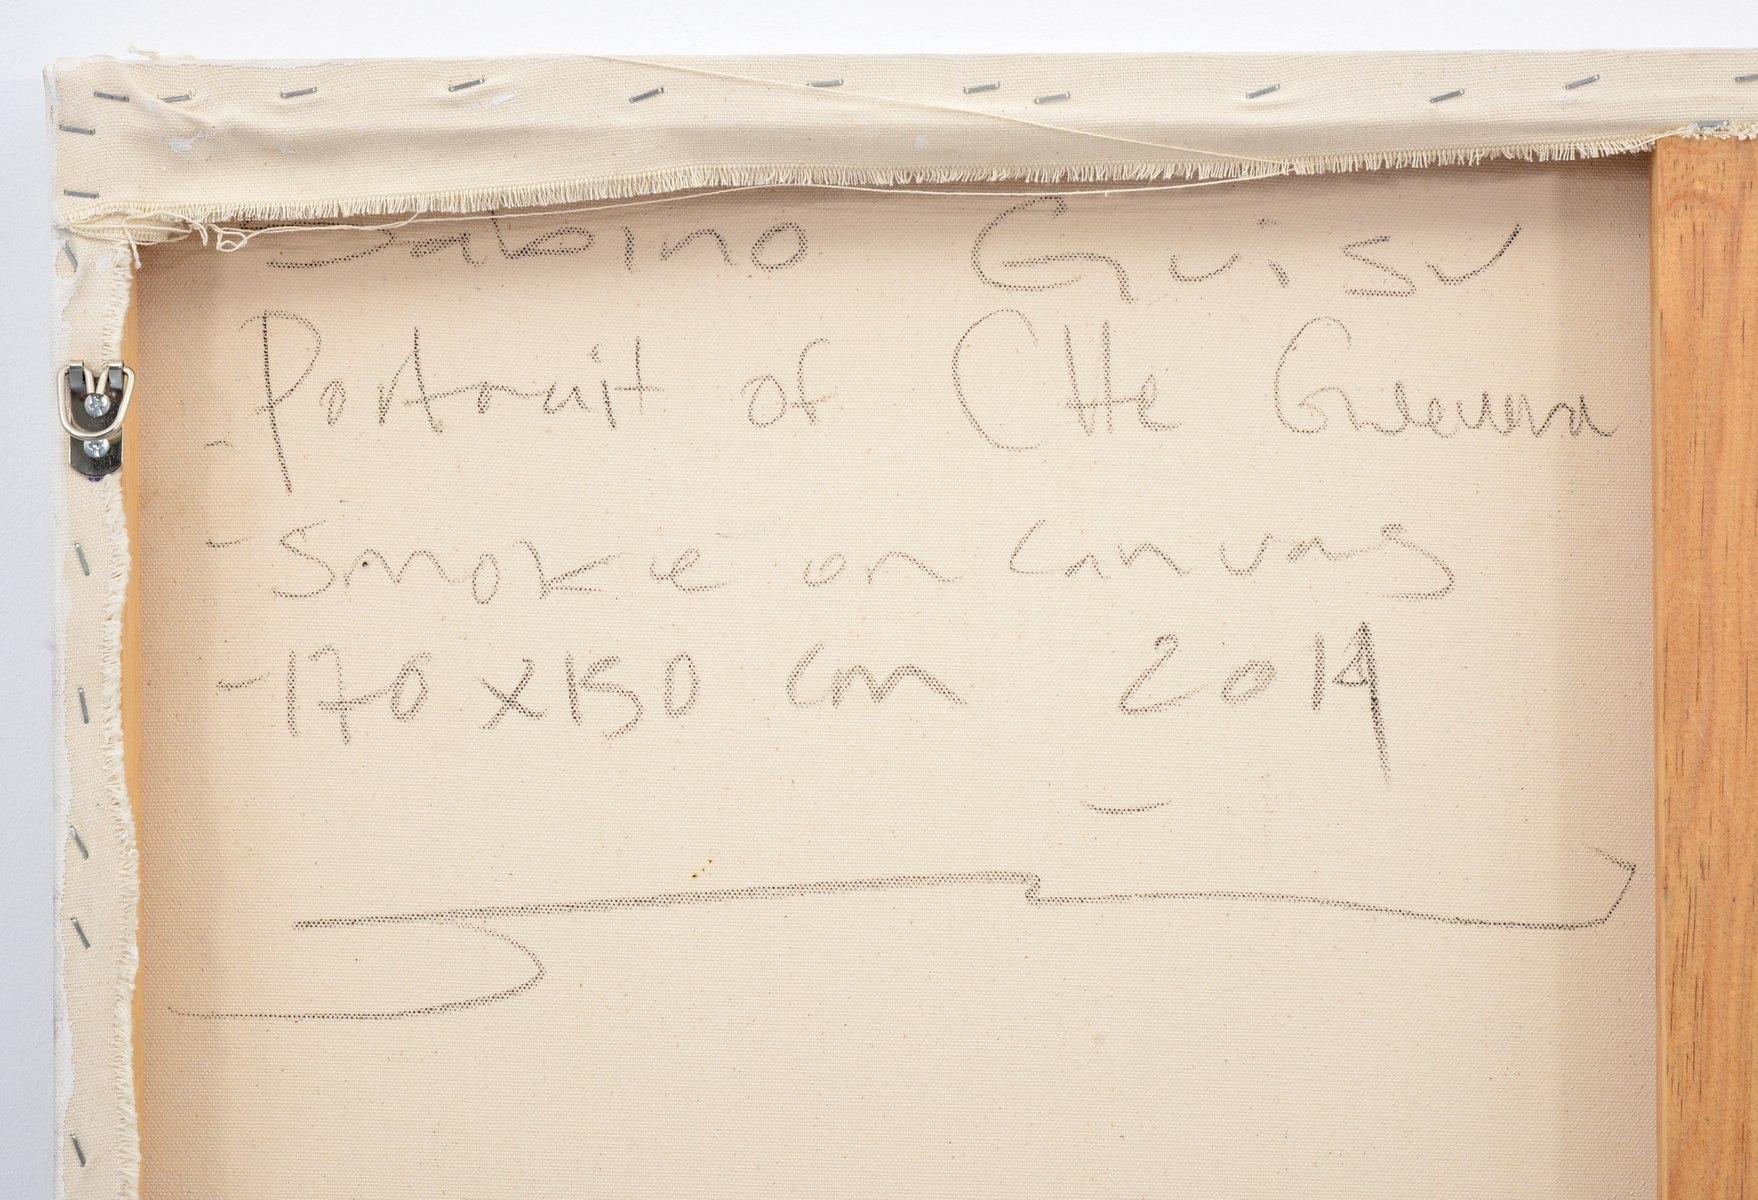 Sabino Guisu
Portrait of CHe Guevara
- Smoke on canvas
- 170 x 150 cm 2014